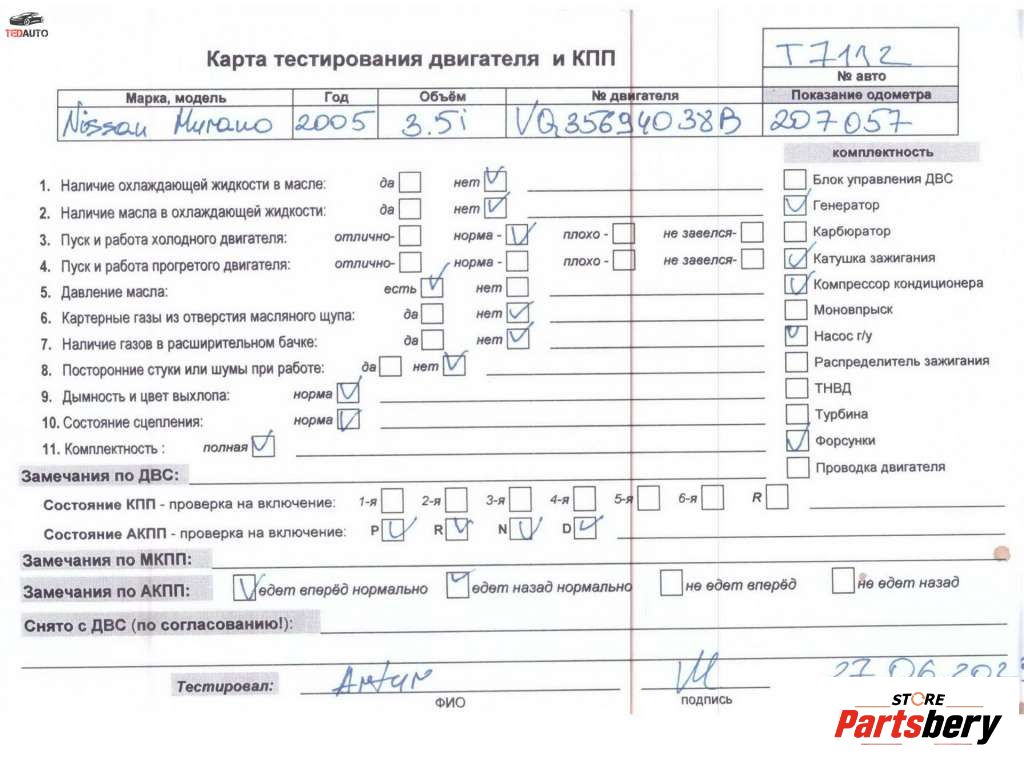 TEDAUTO
Карта тестирования двигателя и КПП
T7132
№ авто
Марка, модель Год Объём № двигателя Показание одометра
Nissan Murano 2005 3.5i VQ35694038B 207057
комплектность
1. Наличие охлаждающей жидкости в масле: да нет
2. Наличие масла в охлаждающей жидкости: да нет
3. Пуск и работа холодного двигателя: отлично- норма - плохо - не завелся-
4. Пуск и работа прогретого двигателя: отлично- норма - плохо - не завелся-
5. Давление масла: есть нет
6. Картерные газы из отверстия масляного щупа: да нет
7. Наличие газов в расширительном бачке: да нет
8. Посторонние стуки или шумы при работе: да нет
9. Дымность и цвет выхлопа: норма
10. Состояние сцепления: норма
11. Комплектность : полная
Блок управления ДВС
Генератор
Карбюратор
Катушка зажигания
Компрессор кондиционера
Моновпрыск
Насос г/у
Распределитель зажигания
ТНВД
Турбина
Форсунки
Проводка двигателя
Замечания по ДВС:
Состояние КПП - проверка на включение: 1-я 2-я 3-я 4-я 5-я 6-я R
Состояние АКПП - проверка на включение: P R N D
Замечания по МКПП:
Замечания по АКПП: едет вперёд нормально едет назад нормально не едет вперёд не едет назад
Снято с ДВС (по согласованию!):
Тестировал: Artur
ФИО подпись
27.06.202
STORE
Partsbery